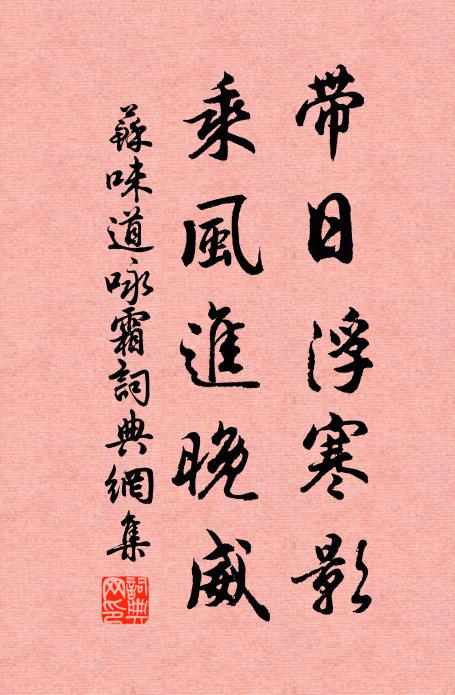 帶日浮寒影
乘風進晚威
蘇味道咏霜詞典網集
詞典网印